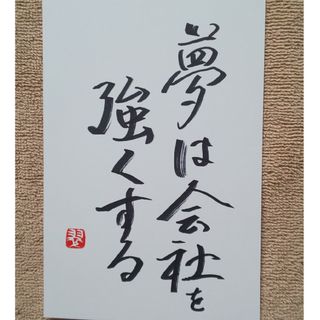 夢は会社を
強くする